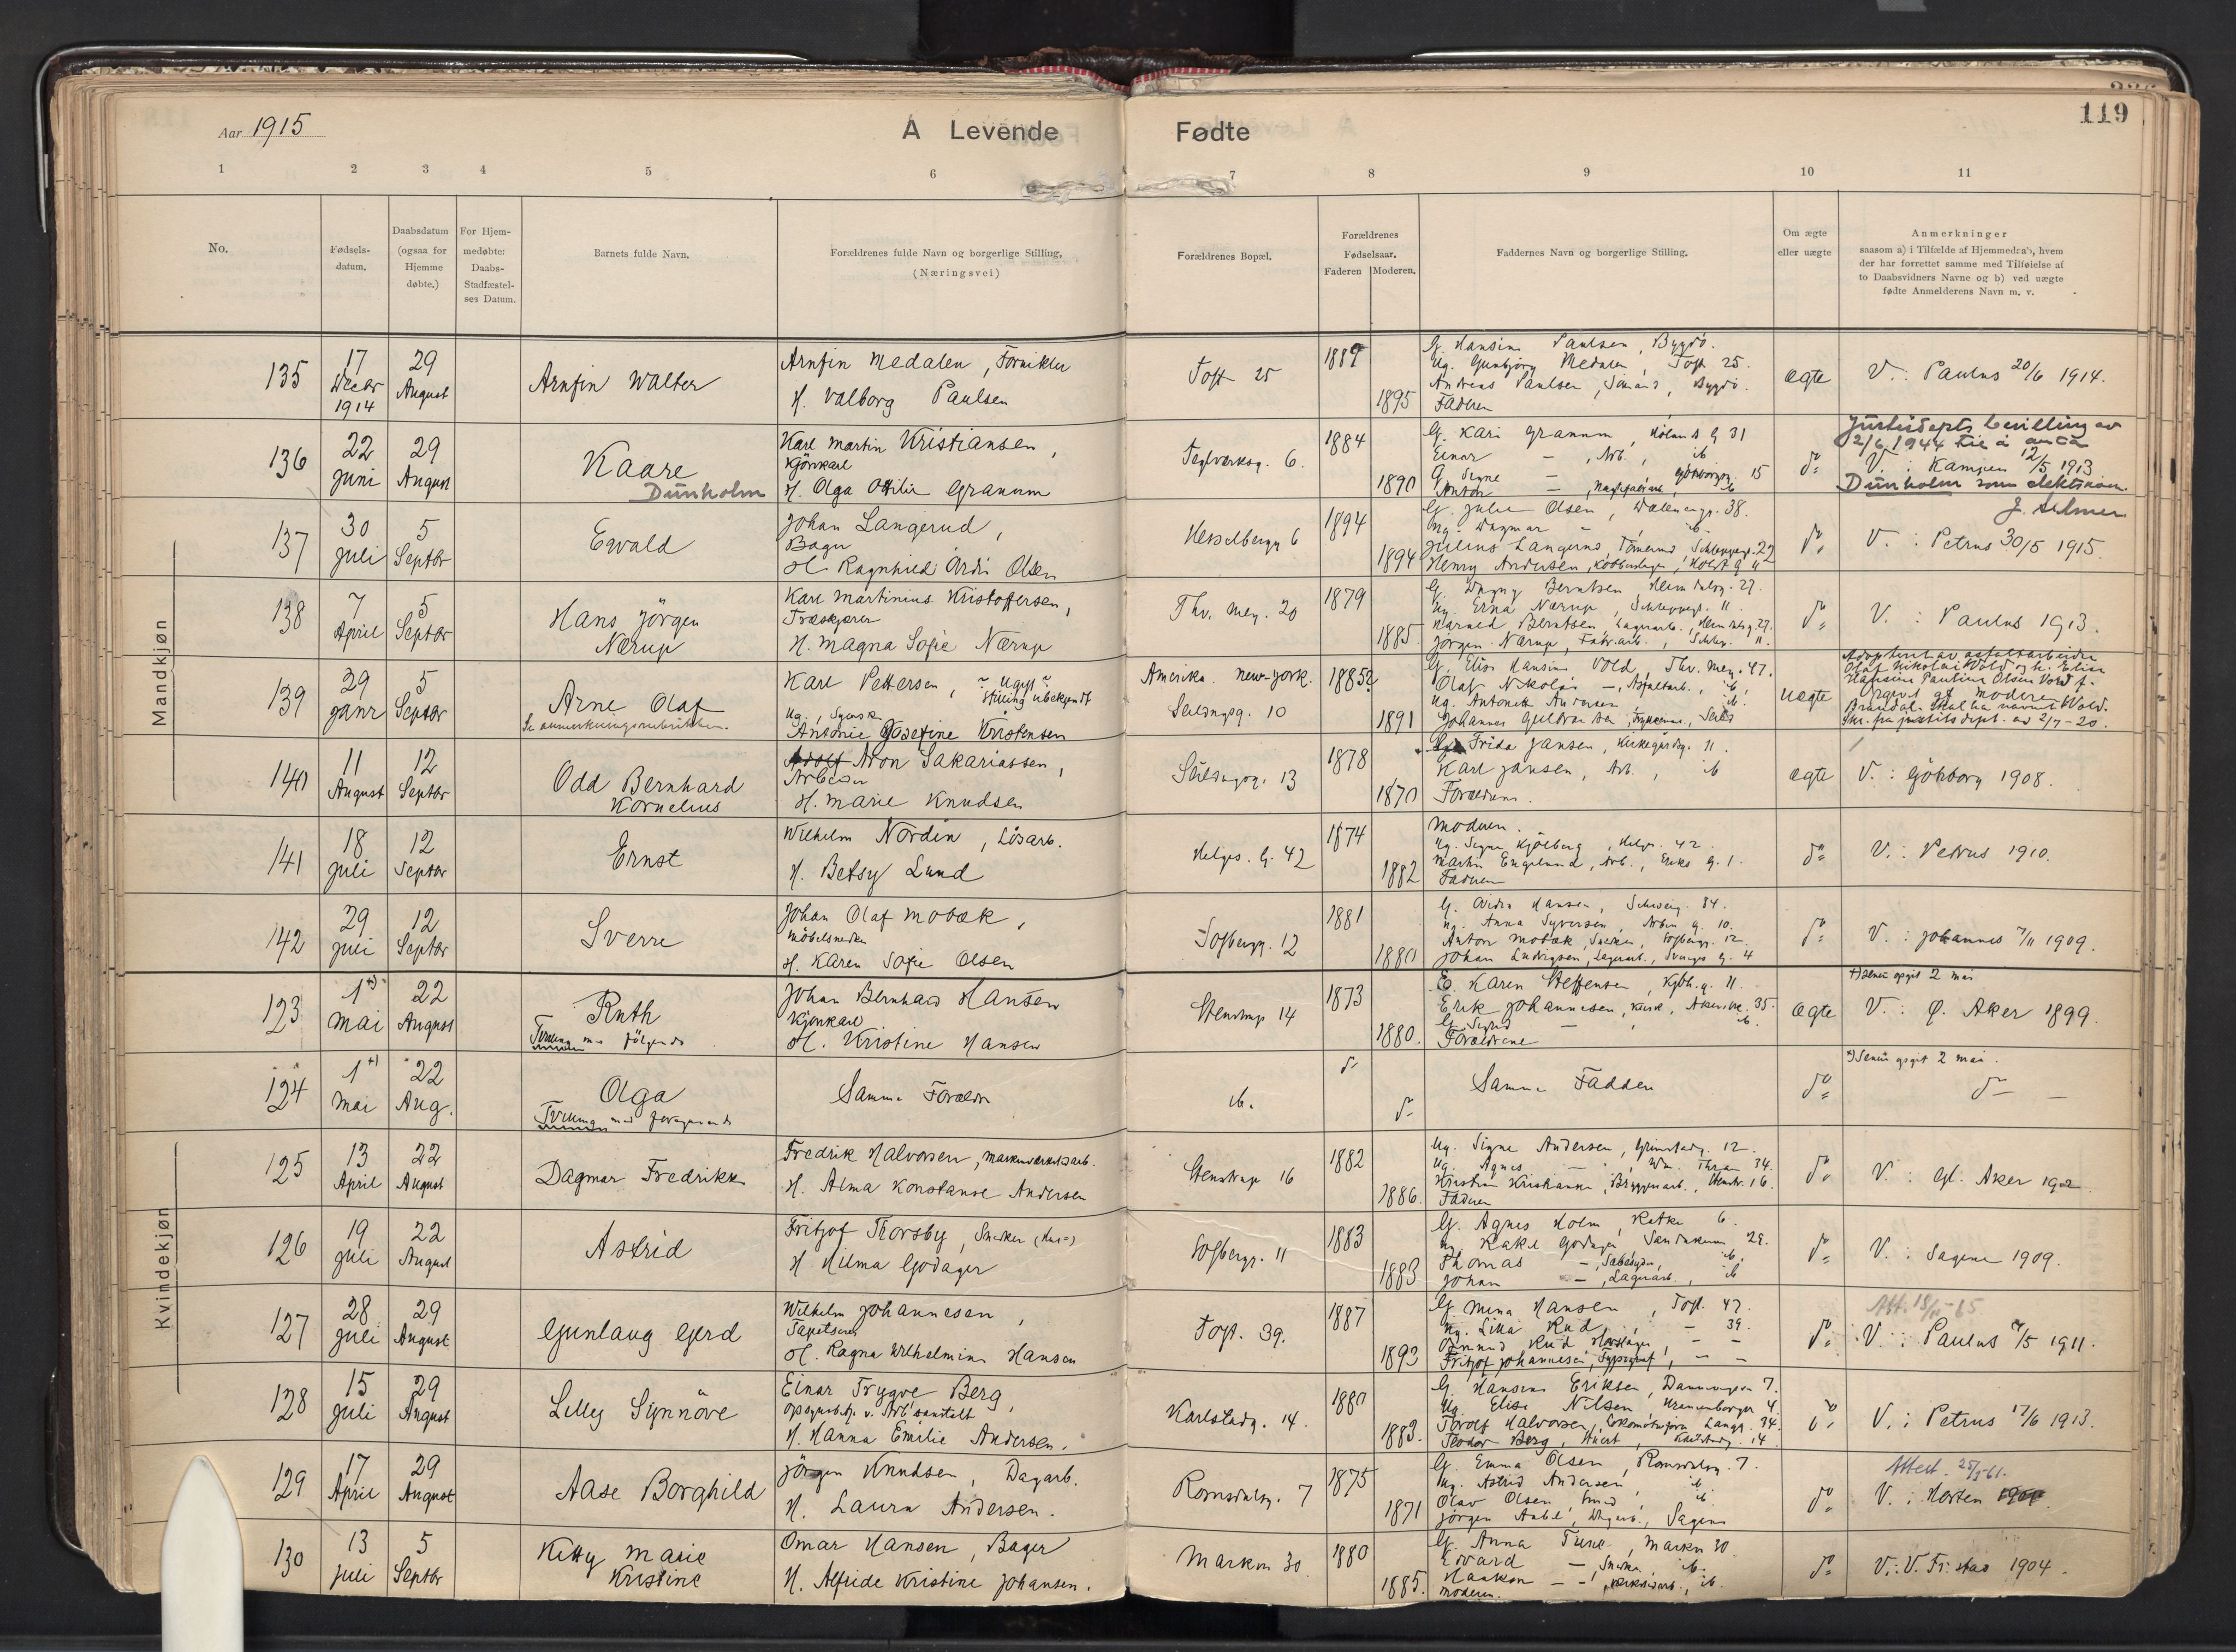 119
Aar 1915
A Levende Fødte
1 2 3 4 5 6 7 8 9 10 11
No.
Fødsels-
datum.
Daabsdatum
(ogsaa for
Hjemme
døbte.)
For Hjem-
medøbte:
Daabs-
Stadfæstel-
ses Datum.
Barnets fulde Navn.
Forældrenes fulde Navn og borgerlige Stilling,
(Næringsvei)
Forældrenes Bopæl.
Forældrenes
Fødselsaar.
Faderen Moderen.
Faddernes Navn og borgerlige Stilling.
Om ægte
eller uægte
Anmerkninger
saasom a) i Tilfælde af Hjemmedaab, hvem
der har forrettet samme med Tilføielse af
to Daabsvidners Navne og b) ved uægte
fødte Anmelderens Navn m. v.
Mandkjøn
135
17
Decbr
1914
29
August
Arnfin Walter
Arnfin Medalen, Fornikler
H. Valborg Paulsen
Toft 25
1889
1895
G. Hansine Paulsen, Bygdö.
Ug. Gunbjörg Medalen, Toft. 25.
Andreas Paulsen, Bygdö.
Faderen
ægte
V.: Paulus 20/6 1914.
136
22
juni
29
August
Kaare
Dunholm
Karl Martin Kristiansen,
Kjörekarl
H. Olga Ottilie Granum
Teglverksg. 6.
1884
1890
G. Kari Granum, 31
Einar — , Arb., ib
G. Signe — Göteborgg. 15
Anton —
do
Justisdepts bevilling av
2/6 1944 til å anta
V.: Kampen 12/5 1913
Dunholm som slektsnavn.
137
30
juli
5
Septbr
Ewald
Johan Langerud,
Bager
H. Ragnhild Olsen
Hesselbergg 6
1894
1894
G. Julie Olsen, 38.
Ug. Dagmar — , ib
Julius Langerud, Tömermd, Schleppegr. 22
Henry Andersen,
do
V.: Petrus 30/5 1915.
138
7
April
5
Septbr
Hans Jörgen
Nærup
Karl Martinius Kristoffersen,
Træskjærer
H. Magna Sofie Nærup
Thv. Mey. 20
1879
1885
G. Dagny Berntsen, Heimdalsg. 27.
Ug. Erna Nærup, Schleppegr. 11.
Harald Berntsen, Lagerarb., Heimdalsg 27.
Jörgen Nærup, Fabr.arb., Schlep. 11.
do
V.: Paulus 1913.
139
29
janr
5
Septbr
Arne Olaf
Se anmerkningsrubrikken.
Karl Pettersen, Ugift
Stilling ubekjendt
Ug., Syerske
Antonie Josefine Kristensen
Amerika. New-York.
Seildugsg. 10
1885?
1891
G. Elise Hansine Vold, Thv. Mey. 47.
Olaf Nikolai — , Asfaltarb., ib,
Ug. Antonette Andersen, ib.
Johannes Guldrandsen,
uægte
Adoptert av asfaltarbeider
Olaf Nikolai Vold og h. Elise
Hansine Pauline Olsen Vold f.
Opgivet af moderen
Arendal. Skal ha navnet Vold.
Skr. fra justitsdept. av 2/7-20.
140
11
August
12
Septbr
Odd Bernhard
Kornelius
Adolf Aron Sakariassen,
Arbeider
H. Marie Knudsen
Seildugsg. 13
1878
1870
G. Frida Jansen, Kirkegårdsg. 11.
Karl Jansen, Arb., ib
Forældrene.
ægte
V.: Göteborg 1908.
141
18
juli
12
Septbr
Ernst
Wilhelm Nordin, Lösarb.
H. Betsy Lund
Helges. G. 42
1874
1882
Moderen.
Ug. Signe Kjölberg, Helges. 42.
Martin Engelund, Arb., Eriks g. 1.
Faderen
do
V.: Petrus 1910.
142
29
juli
12
Septbr
Sverre
Johan Olaf Mobæk,
Möbelsnedker
H. Karen Sofie Olsen
Sofbergg. 12
1881
1880
G. Hansen, Schweig. 84.
Ug. Anna Syversen, 10.
Anton Mobæk, Snedker, Sofbergg. 12.
Johan Ludvigsen, Lagerarb., Sverres g. 4
do
V.: Johannes 7/11 1909.
Kvindekjøn
123
1+)
Mai
22
August
Ruth
Tvilling med fölgende
Johan Bernhard Hansen
Kjörekarl
H. Kristine Hansen
Stenstrup 14
1873
1880.
E. Karen Steffensen, Kjbh. g. 11.
Erik Johannesen, Kusk, Akersvei. 35.
G. Sigrid — , ib.
Forældrene
ægte
+) Senere opgit 2 mai
V.: Ø. Aker 1899.
124
1+)
Mai
22
Aug.
Olga
Tvilling med foregaaende
Samme Forældre
ib.
do
do
Samme Faddere
do
+) Senere opgit 2 mai.
do —
125
13
April
22
August
Dagmar Fredrikke
Fredrik Halvorsen, Maskinverkstedsarb.
H. Alma Konstanse Andersen
Stenstrup 16
1882
1886.
Ug. Signe Andersen, Grimstadg. 12.
Ug. Agnes — , Thran 34.
Kristian Kristiansen, Bryggeriarb., Stenstr. 16.
Faderen
do
V.: Gl. Aker 1902
126
19
juli
22
August
Astrid
Fritjof Thorsby, Snedker
H. Hilma Godager
Sofbergg. 11
1883
1883
G. Agnes Holm, Ratke 6.
Ug. Rakel Godager, Sandakerv. 29.
Thomas — , ib.
Johan — , Lagerarb., ib
do
V.: Sagene 1909.
127
28
juli
29
August
Gunlaug Gerd
Wilhelm Johannesen,
Tapetserer
H. Ragna Wilhelmine Hansen
Toft. 39.
1887
1893
G. Mina Hansen, Toft. 47.
Ug. Lilla Rud, — 39.
Rud
Fritjof Johannesen, Typograf, — —
do
Att. 18/11-65
V.: Paulus 7/5 1911.
128
15
juli
29
August
Lilly Synnöve
Einar Trygve Berg,
Opsynsbetj. v. Arb.anstalt
H. Hanna Emilie Andersen.
Karlstadg. 14.
1880
1883.
G. Hansine Eriksen, 7.
Ug. Elise Nilsen, 4.
Torolf Halvorsen, Langg. 34.
Teodor Berg, Karlstadg. 14
do
V.: Petrus 17/6 1913.
129
17
April
29
August
Aase Borghild
Jörgen Knudsen, Dagarb.
H. Laura Andersen.
Romsdalsg. 7
1875
1871
G. Emma Olsen, Romsdalsg. 7.
Ug. Astrid Andersen, ib.
Olav Olsen, Smed, ib
Jörgen Aabel, Sagene
do
Attest. 25/5-61.
V.: Horten
130
13
juli
5
Septbr
Kitty Marie
Kristine
Omar Hansen, Bager
H. Alfride Kristine Johansen.
Markvn 30.
1880
1885.
G. Anna Tune, Markvn 30
Edvard — , Snedker, ib.
Haakon — — , ib.
Moderen.
do
V.: V. Fr.stad 1904.